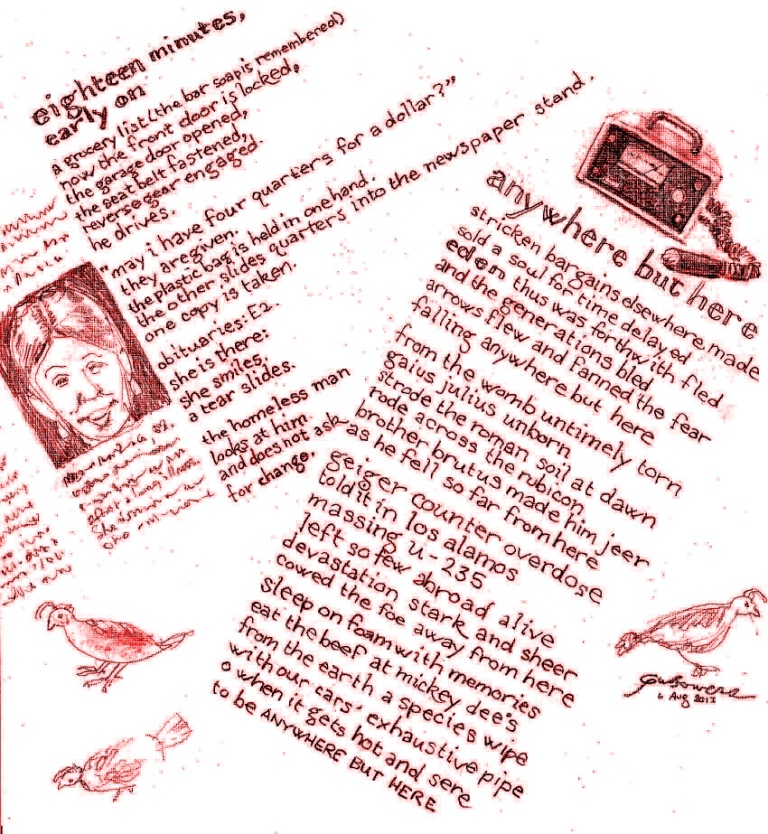 eighteen minutes,
early on
a grocery list (the bar soap is remembered)
now the front door is locked,
the garage door opened,
the seat belt fastened,
reverse gear engaged.
he drives.
"may i have four quarters for a dollar?"
they are given.
the plastic bag is held in one hand.
the other slides quarters into the newspaper stand.
one copy is taken.
obituaries: E2.
she is there:
she smiles.
a tear slides.
the homeless man
looks at him
and does not ask
for change.
anywhere but here
stricken bargains elsewhere made
sold a soul for time delayed
edem thus was forthwith fled
and the generations bled
arrows flew and fanned the fear
falling anywhere but here
from the womb untimely torn
gaius julius unborn
strode the roman soil at dawn
rode across the rubicon
brother brutus made him jeer
as he fell so far from here
geiger counter overdose
told it in los alamos
massing u-235
left so few abroad alive
devastation, stark and sheer
cowed the foe away from here
sleep on foam with memories
eat the beef at mickey dee's
from the earth a species wipe
with our cars' exhaustive pipe
o when it gets hot and sere
to be ANYWHERE BUT HERE
6 Aug 2013